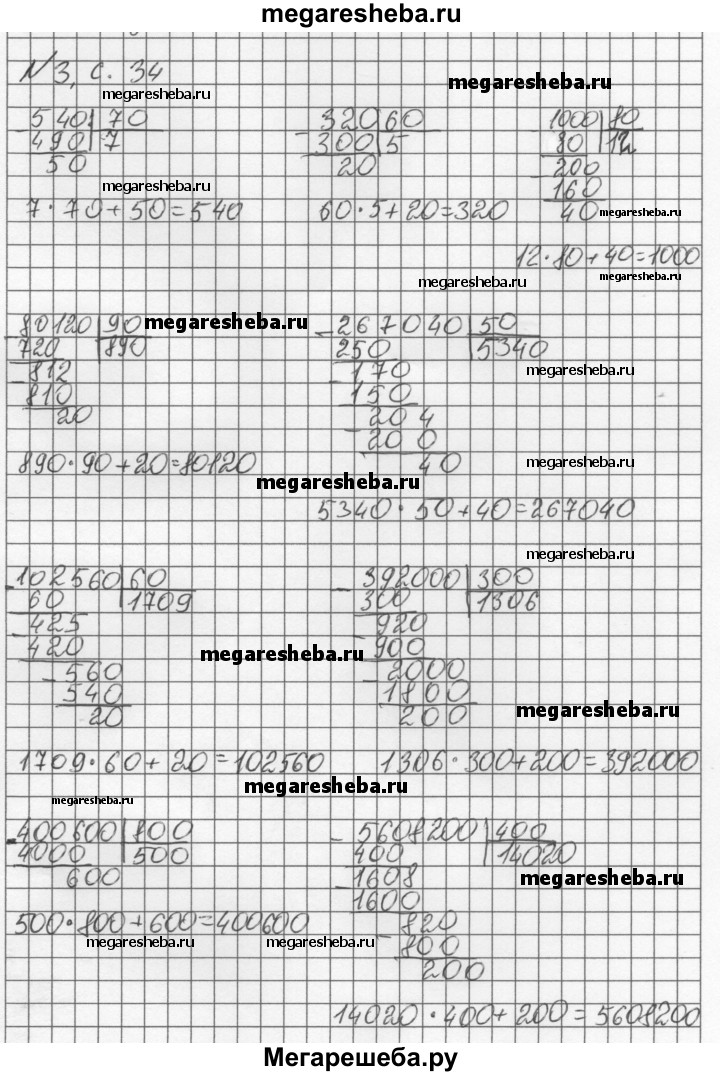 megaresheba.ru
№3, с. 34
megaresheba.ru
megaresheba.ru
540 70
490 7
50
megaresheba.ru
7 · 70 + 50 = 540
320 60
300 5
20
60 · 5 + 20 = 320
1000 80
80 12
200
160
40
megaresheba.ru
12 · 80 + 40 = 1000
megaresheba.ru
megaresheba.ru
80120 90
720 890
812
810
20
megaresheba.ru
890 · 90 + 20 = 80120
267040 50
250 5340
170
150
204
200
40
megaresheba.ru
megaresheba.ru
megaresheba.ru
5340 · 50 + 40 = 267040
megaresheba.ru
102560 60
60 1709
425
420
560
540
20
megaresheba.ru
1709 · 60 + 20 = 102560
392000 300
300 1306
920
900
2000
1800
200
megaresheba.ru
1306 · 300 + 200 = 392000
megaresheba.ru
megaresheba.ru
400600 800
4000 500
600
500 · 800 + 600 = 400600
megaresheba.ru
megaresheba.ru
5608200 400
400 14020
1608
1600
820
800
200
megaresheba.ru
14020 · 400 + 200 = 5608200
Мегарешеба.ру